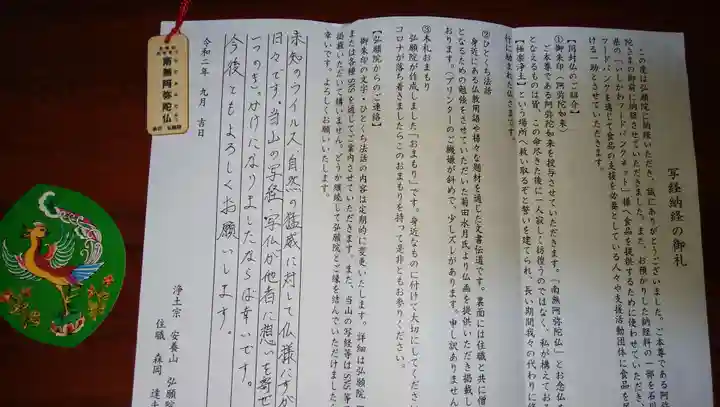 写経納経の御礼
この度は弘願院に納経いただき、誠にありがとうございました。ご本尊である阿弥
陀さまの御前に納経させていただきました。また、お預かりした納経料の一部を石川
県の「いしかわフードバンクネット」様へ食品を提供するために使わせていただき、
フードバンクを通じて食品の支援を必要としている人々や支援活動団体に食品を
ける一助とさせていただきます。
【同封仏のご紹介】
①御朱印（阿弥陀如来）
ご本尊である阿弥陀如来を授与させていただきます。「南無阿弥陀仏」とお念仏
となえるものは皆、この命尽きた後に一人寂しく彷徨うのではなく、私が構えてお
【極楽浄土】という場所へ救い取るぞと誓いを建てられ、長い期間我々の代わりに修
行に励まれた仏さまです。
②ひとくち法話
身近にある仏教用語や様々な題材を通じた文書伝道です。裏面には住職と共に僧
となるための勉強をさせていただいた菊田水月氏より仏画を提供いただき掲載し
おります。（プリンターのご機嫌が斜めで、少しズレがあります。申し訳ありません
③木札おまもり
弘願院が作成しました「おまもり」です。身近なものに付けて大切にしてください
コロナが落ち着きましたらこのおまもりを持って是非ともお参りください。
【弘願院からのご連絡】
御朱印の文字、ひとくち法話の内容は定期的に変更いたします。詳細は弘願院
または各種SNSを通じてご案内させていただきます。また、当山の写経等はSNS等
掲載いただいて構いません。どうか継続して弘願院とご縁を結んでいただけましたら
幸いです。よろしくお願いいたします。
未知のウイルス、自然の猛威に対して仏様にすが
日々です。当山の写経、写仏が他者に想いを寄せ
一つのきっかけになりましたならば幸いです。
今後ともよろしくお願いします。
令和二年 九月 吉日
浄土宗 安養山 弘願院
住職 森岡 達
南無阿弥陀仏